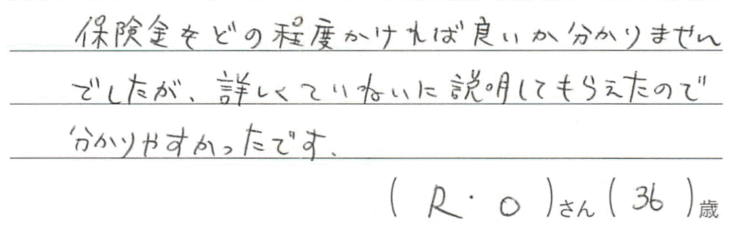 保険金をどの程度かければ良いか分かりません
でしたが、詳しくていねいに説明してもらえたので
分かりやすかったです.
( R・O )さん ( 36 )歳